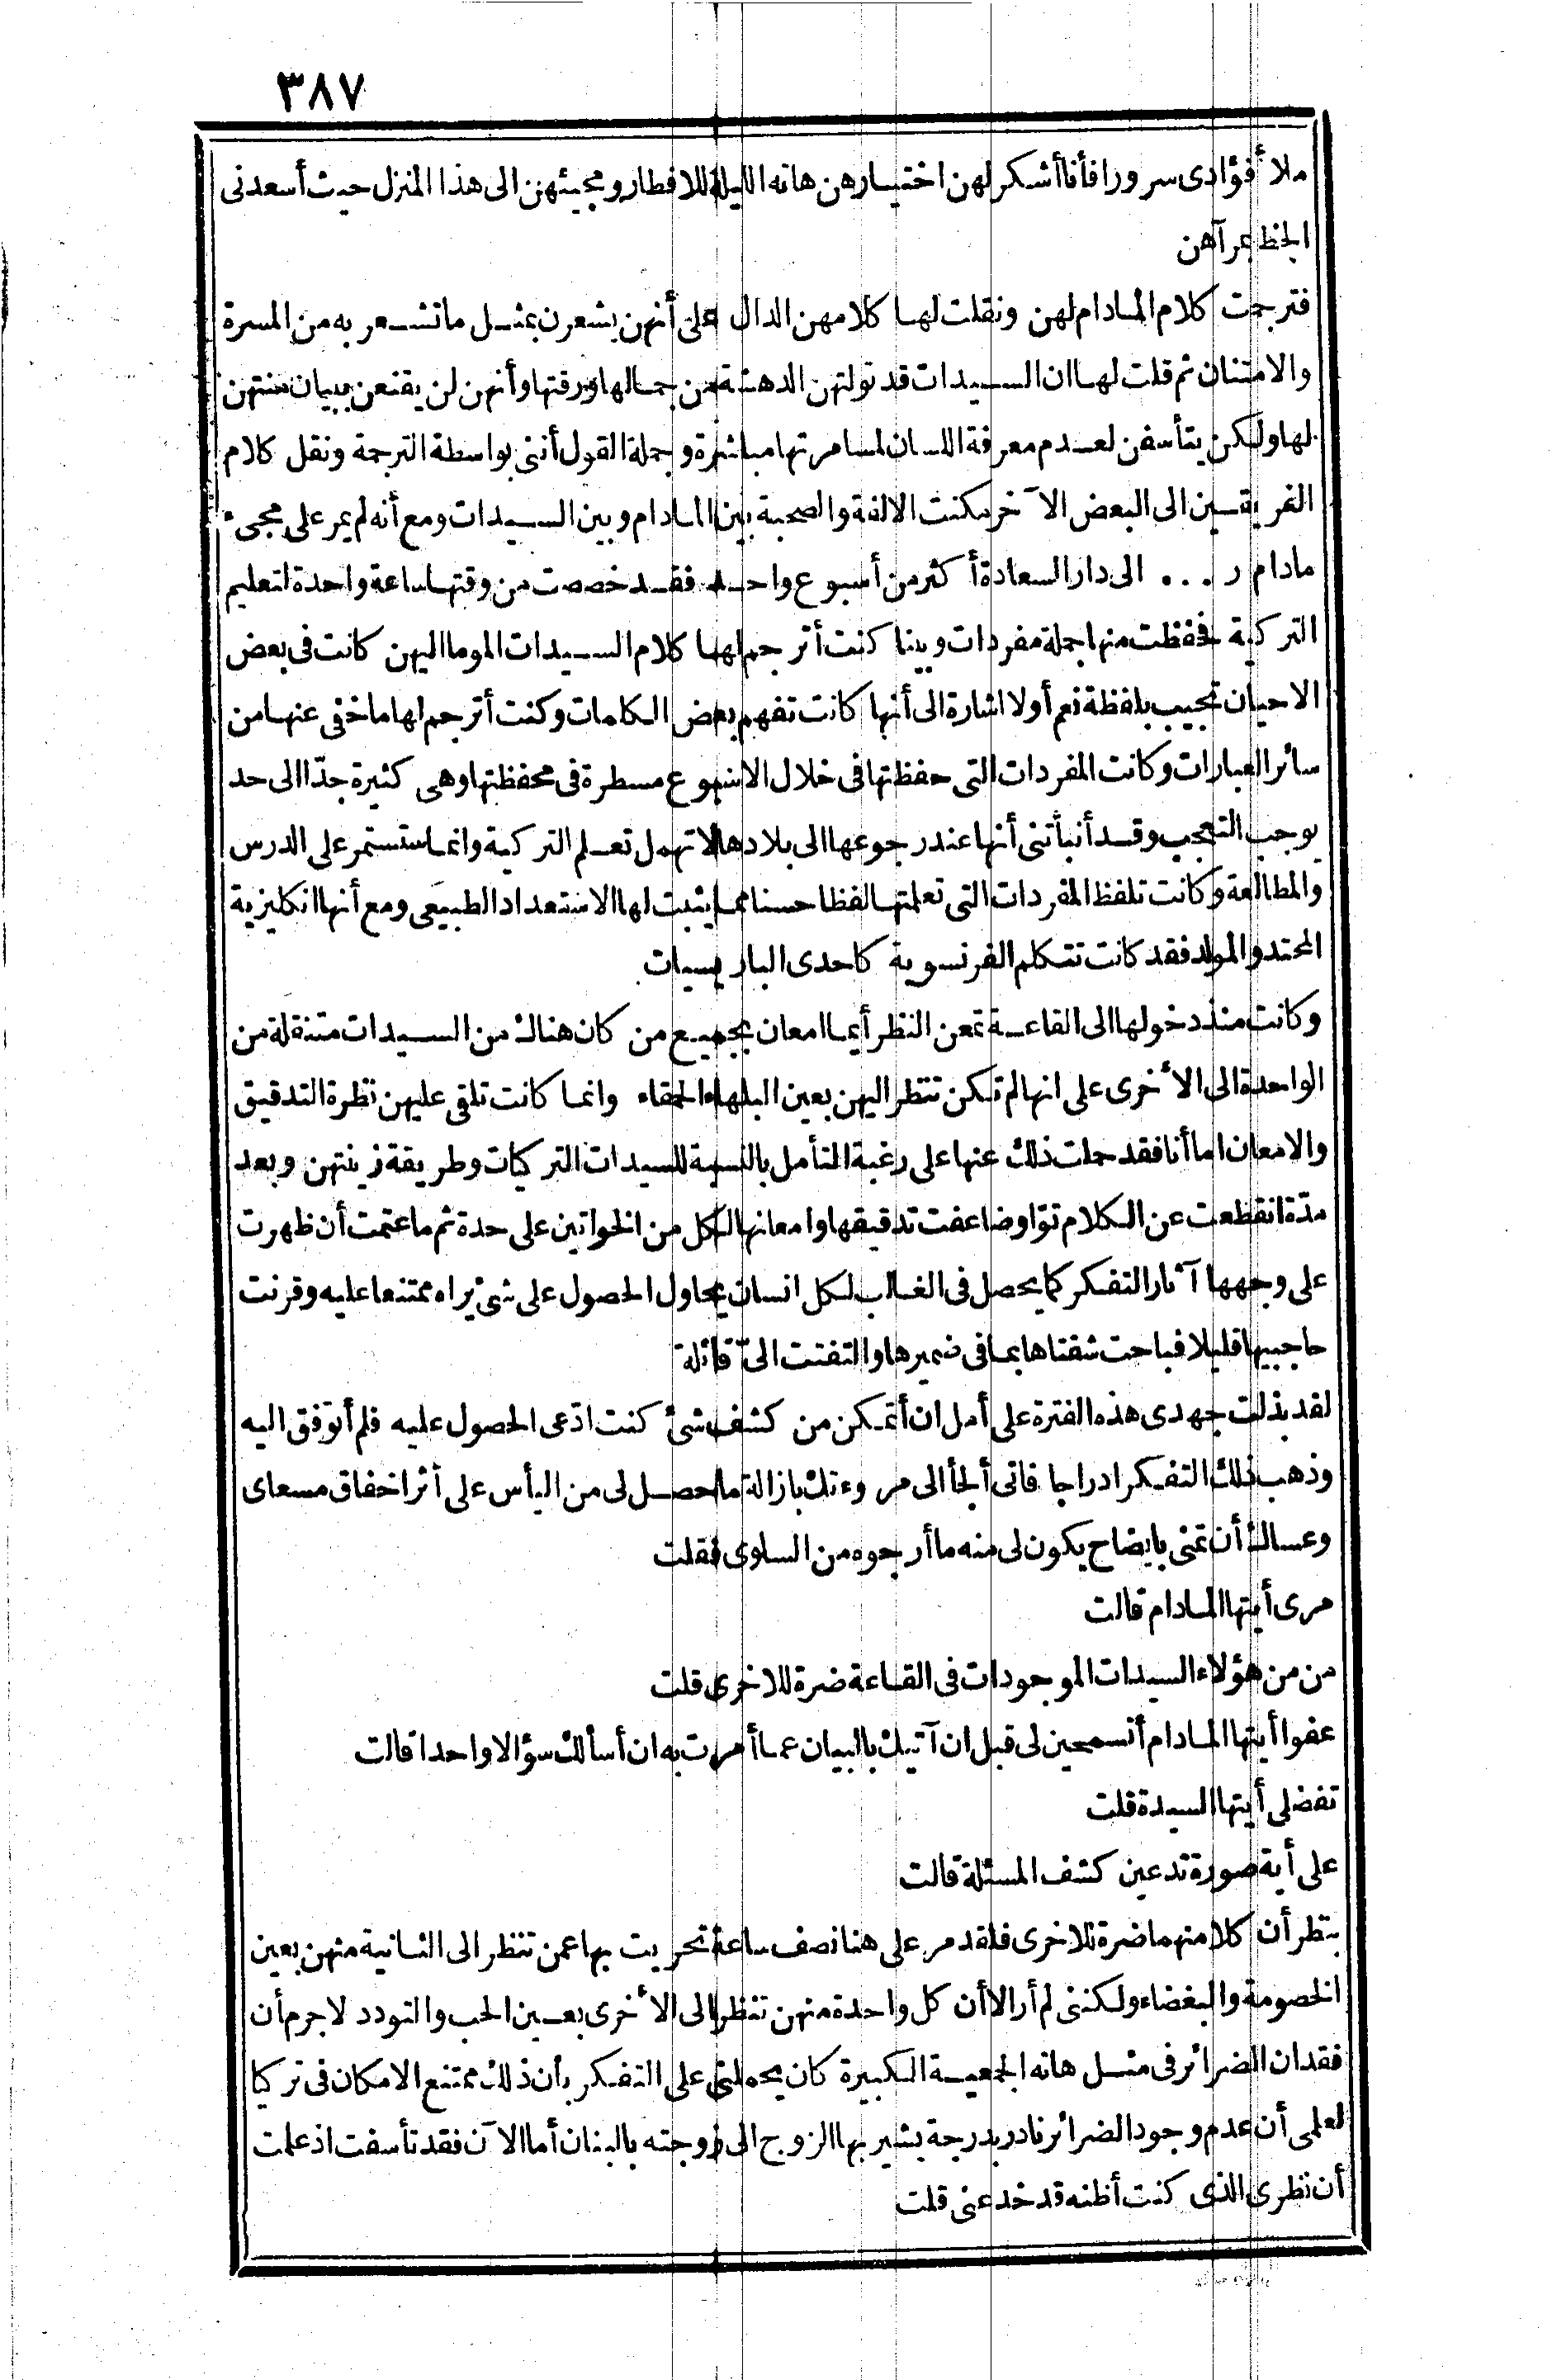 ٣٨٧
ملأ فؤادى سرورا فأنا أشكر لهن اختيارهن هاته الليلة للافطار ومجيئهن الى هذا المنزل حيث أسعدنى
الحظ بمرآهن
فترجمت كلام المادام لهن ونقلت لها كلامهن الدال على أنهن يشعرن بمثل ما تشعر به من المسرة
والامتنان ثم قلت لها ان السيدات قد تولتهن الدهشة من جمالها ورقتها وأنهن لن يقنعن ببيان منتهن
لها ولكن يتأسفن لعدم معرفة اللسان لمسامرتها مباشرة وجملة القول أننى بواسطة الترجمة ونقل كلام
الفريقين الى البعض الآخر مكنت الالفة والصحبة بين المادام وبين السيدات ومع أنه لم يمر على مجىء
مادام ر ... الى دار السعادة أكثر من أسبوع واحد فقد خصصت من وقتها ساعة واحدة لتعليم
التركية فحفظت منها جملة مفردات وبينا كنت أترجم لها كلام السيدات الموما اليهن كانت فى بعض
الاحيان تجيب بلفظة نعم أو لا اشارة الى أنها كانت تفهم بعض الكلمات وكنت أترجم لها ما خفى عنها من
سائر العبارات وكانت المفردات التى حفظتها فى خلال الاسبوع مسطرة فى محفظتها وهى كثيرة جدّا الى حد
يوجب التعجب وقد أنبأتنى أنها عند رجوعها الى بلادها لا تهمل تعلم التركية وانما ستستمر على الدرس
والمطالعة وكانت تلفظ المفردات التى تعلمتها لفظا حسنا مما يثبت لها الاستعداد الطبيعى ومع أنها انكليزية
المحتد والمولد فقد كانت تتكلم الفرنسوية كاحدى الباريسيات
وكانت منذ دخولها الى القاعة تمعن النظر أيما امعان بجميع من كان هناك من السيدات متنقلة من
الواحدة الى الأخرى على انها لم تكن تنظر اليهن بعين البلهاء الحمقاء وانما كانت تلقى عليهن نظرة التدقيق
والامعان اما أنا فقد حملت ذلك عنها على رغبة التأمل بالنسبة للسيدات التركيات وطريقة زينتهن وبعد
مدّة انقطعت عن الكلام توّا وضاعفت تدقيقها وامعانها لكل من الخواتين على حدة ثم ما عتمت أن ظهرت
على وجهها آثار التفكر كما يحصل فى الغالب لكل انسان يحاول الحصول على شئ يراه ممتنعا عليه وقرنت
حاجبيها قليلا فباحت شفتاها بما فى ضميرها والتفتت الىّ قائلة
لقد بذلت جهدى هذه الفترة على أمل ان أتمكن من كشف شئ كنت ادّعى الحصول عليه فلم أتوفق اليه
وذهب ذلك التفكر ادراجا فانى ألجأ الى مروءتك بازالة ما حصل لى من اليأس على أثر اخفاق مسعاى
وعساك أن تمنى بايضاح يكون لى منه ما أرجوه من السلوى فقلت
مرى أيتها المادام قالت
من من هؤلاء السيدات الموجودات فى القاعة ضرة للاخرى قلت
عفوا أيتها المادام أتسمحين لى قبل ان آتيك بالبيان عما أمرت به ان أسألك سؤالا واحدا قالت
تفضلى أيتها السيدة قلت
على أية صورة تدعين كشف المسئلة قالت
بنظر أن كلا منهما ضرة للاخرى فلقد مر على هنا نصف ساعة تحريت بها عمن تنظر الى الثانية منهن بعين
الخصومة والبغضاء ولكننى لم أر الا أن كل واحدة منهن تنظر الى الأخرى بعين الحب والتودد لا جرم أن
فقدان الضرائر فى مثل هاته الجمعية الكبيرة كان يحملنى على التفكر بأن ذلك ممتنع الامكان فى تركيا
لعلمى أن عدم وجود الضرائر نادر بدرجة يشير بها الزوج الى زوجته بالبنان أما الآن فقد تأسفت اذ علمت
أن نظرى الذى كنت أظنه قد خدعنى قلت